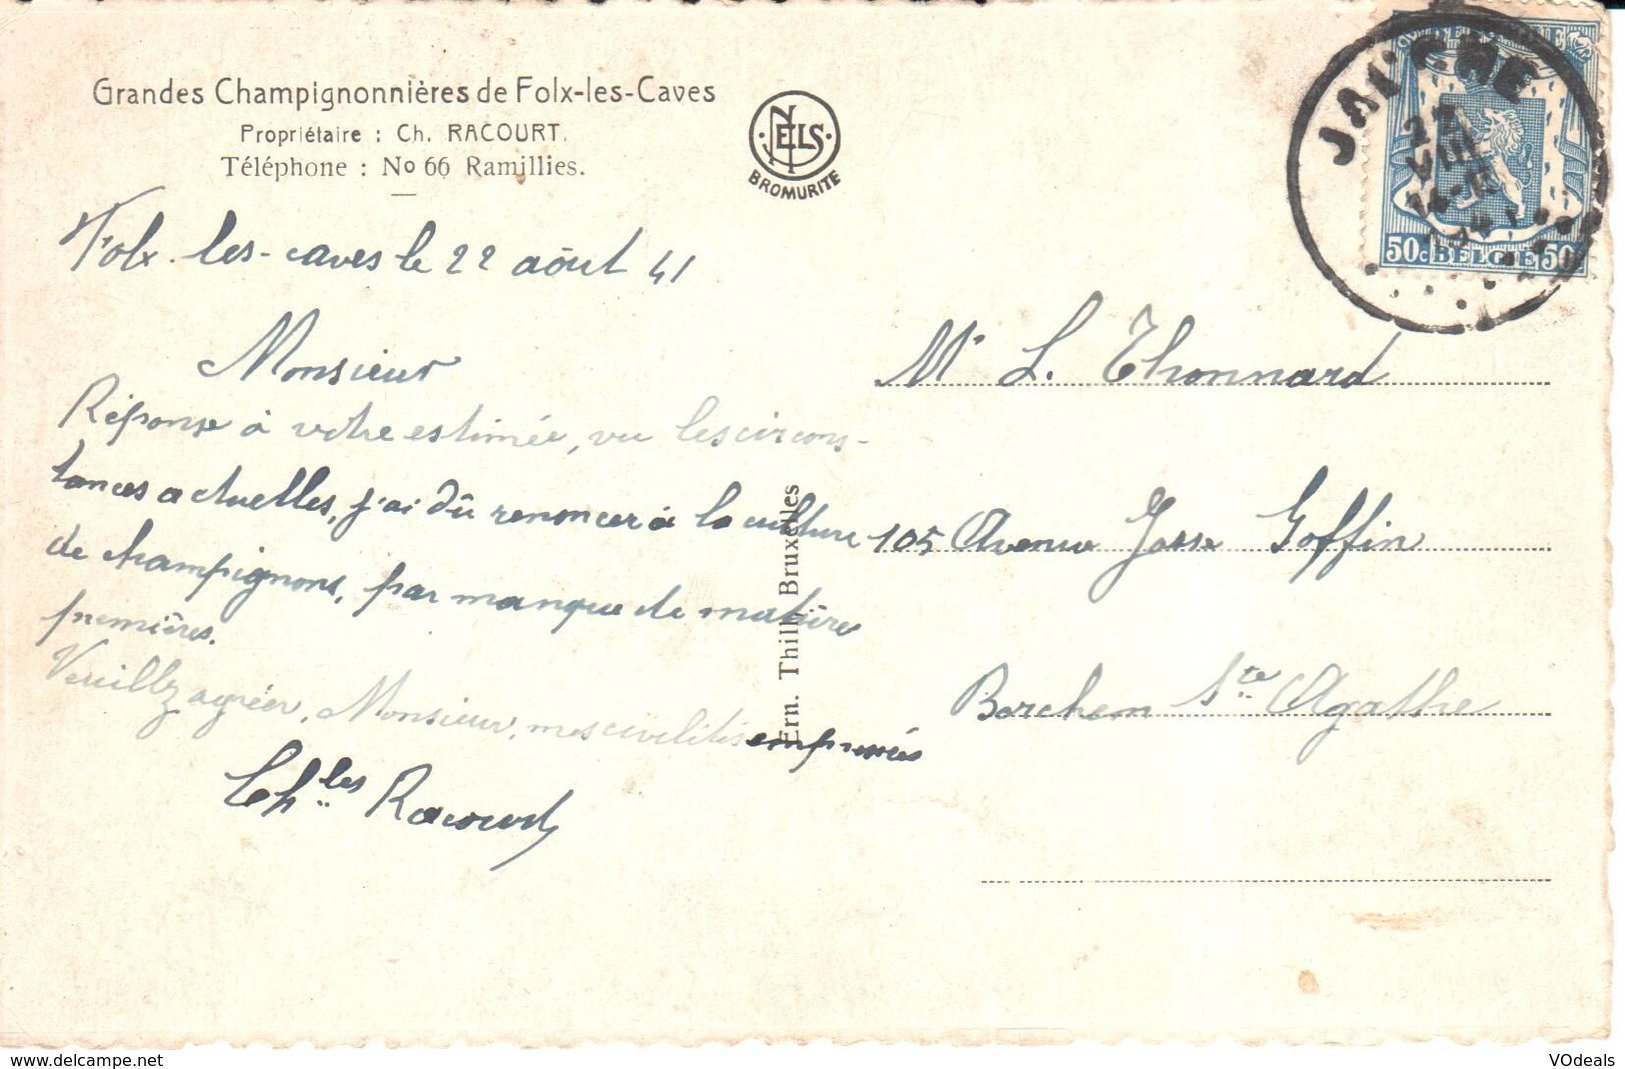 Grandes Champignonnières de Folx-les-Caves
Propriétaire : Ch. RACOURT.
Téléphone : No 66 Ramillies.
NELS
BROMURITE
JAUCHE
22
VIII
1941
BELGIQUE
50c BELGIE 50c
Folx-les-caves le 22 août 41
Monsieur
Réponse à votre estimée, vu les circons-
tances actuelles, j'ai dû renoncer à la culture
de champignons, par manque de matière
premières.
Veuillez agréer, Monsieur, mes civilités empressées
Chles Racourt
Ern. Thill, Bruxelles
Mr L. Thonnard
105 Avenue Josse Goffin
Berchem Ste Agathe
www.delcampe.net
VOdeals